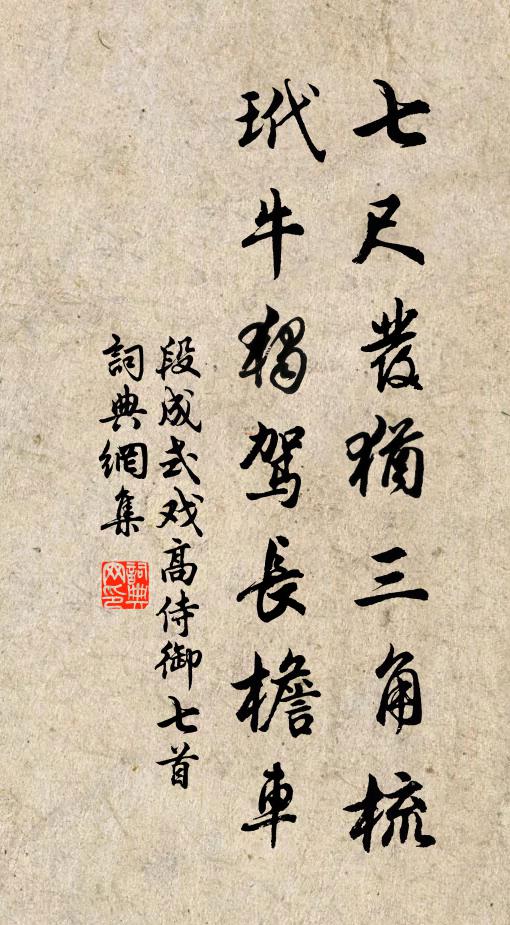 七尺發猶三角梳
玳牛獨駕長檐車
段成式戏高侍御七首
詞典網集
詞典网印